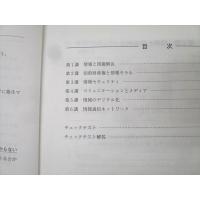 目 次
第1講 情報と問題解決
第2講 法的財産権と情報モラル
第3講 情報セキュリティ
第4講 コミュニケーションとメディア
第5講 情報のデジタル化
第6講 情報通信ネットワーク
チェックテスト
チェックテスト解答